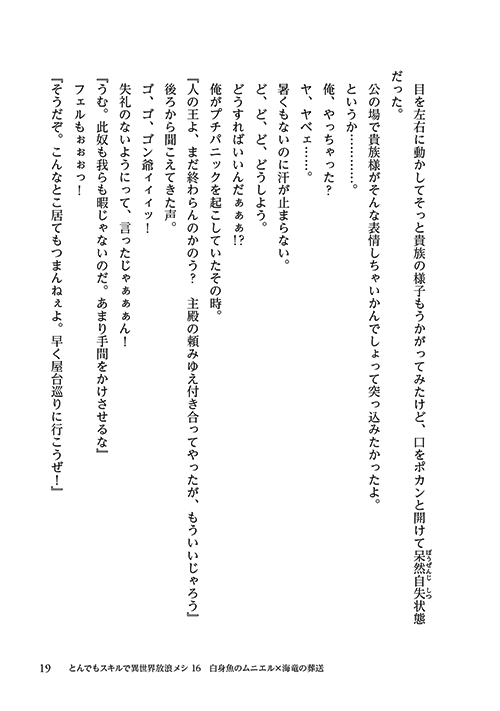 目を左右に動かしてそっと貴族の様子もうかがってみたけど、口をポカンと開けて呆然自失状態
だった。
公の場で貴族様がそんな表情しちゃいかんでしょって突っ込みたかったよ。
というか…………。
俺、やっちゃった？
ヤ、ヤベェ……。
暑くもないのに汗が止まらない。
ど、ど、ど、どうしよう。
どうすればいいんだぁぁぁ!?
俺がプチパニックを起こしていたその時。
『人の王よ、まだ終わらんのかのう？　主殿の頼みゆえ付き合ってやったが、もういいじゃろう』
後ろから聞こえてきた声。
ゴ、ゴ、ゴン爺ィィィッ！
失礼のないようにって、言ったじゃぁぁぁん！
『うむ。此奴も我らも暇じゃないのだ。あまり手間をかけさせるな』
フェルもぉぉぉっ！
『そうだぞ。こんなとこ居てもつまんねぇよ。早く屋台巡りに行こうぜ！』
ぼうぜんじしつ
19　とんでもスキルで異世界放浪メシ 16　白身魚のムニエル×海竜の葬送